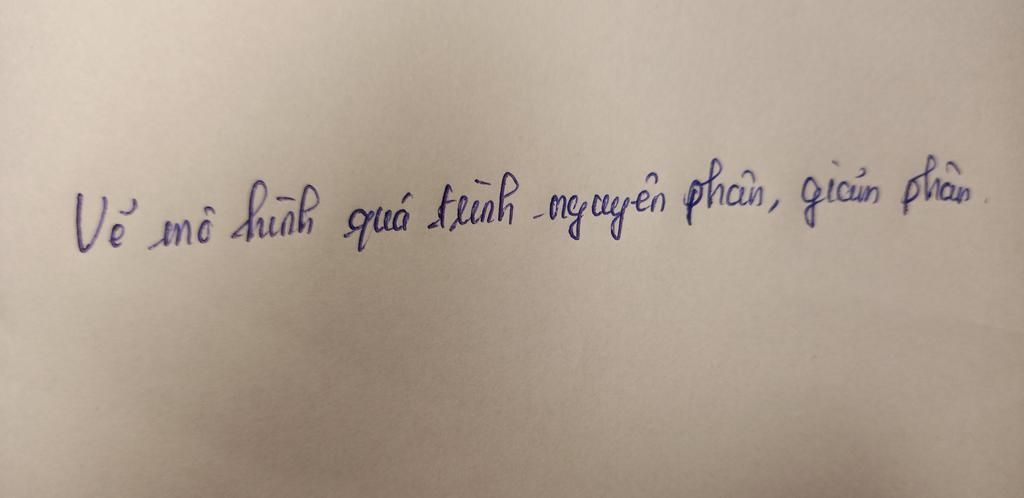 Vẻ mô hình quá trình nguyên phân, giản phân.